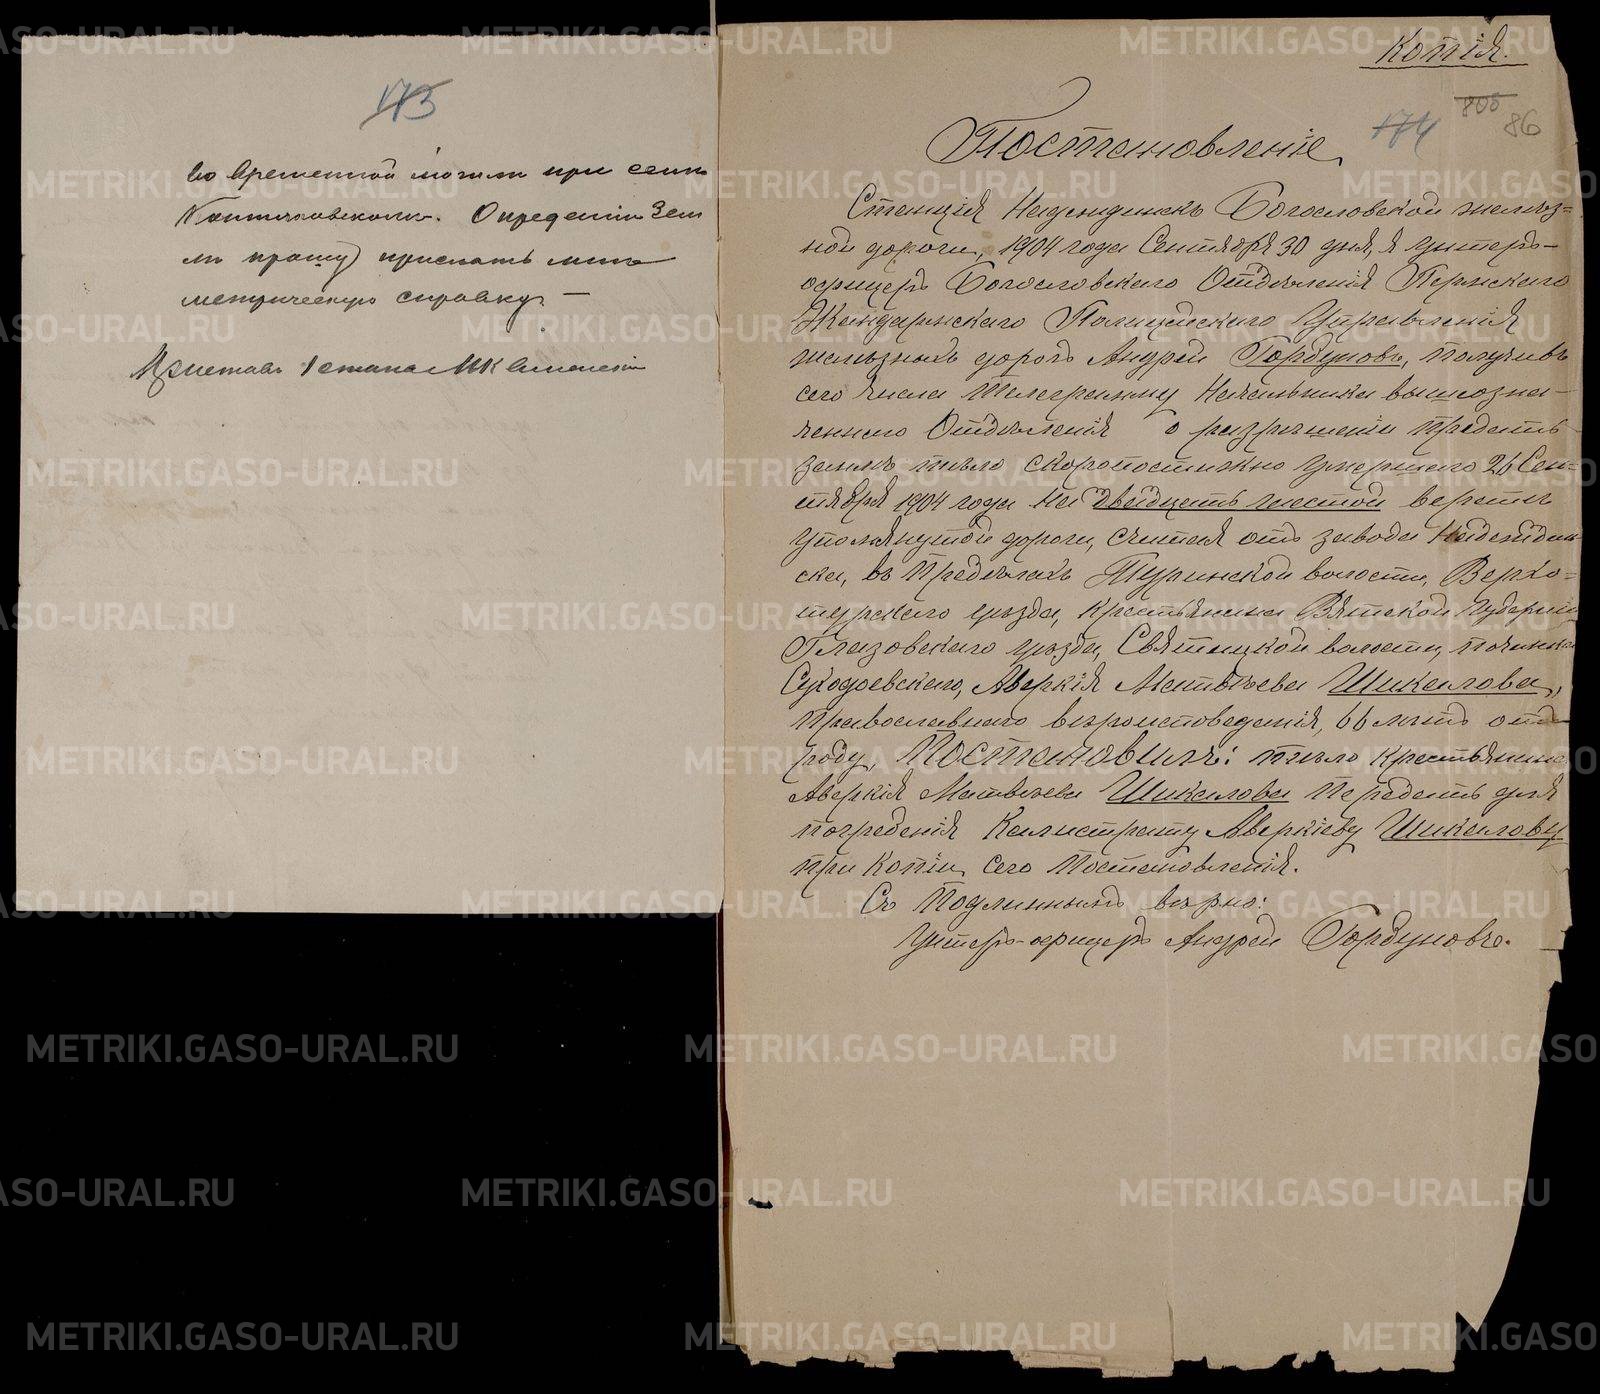 173
во временной могили при селе
Коптяковском. О предании зем
ли прошу прислать мне
метрическую справку. —
Пристав 1 стана
Копія.
805
174
86
Постановленіе
Станція Надеждинскъ Богословской желѣз=
ной дороги, 1904 года Сентября 30 дня, я унтеръ-
офицеръ Богословского Отдѣленія Пермскаго
Жандармскаго Полицейскаго Управленія
желѣзныхъ дорогъ Андрей Горбуновъ, получивъ
сего числа телеграмму Начальника вышеозна-
ченнаго Отдѣленія о разрѣшеніи предать
землѣ тѣло скоропостижно умершаго 26 Сен=
тября 1904 года на двадцать шестой верстѣ
упомянутой дороги, считая отъ завода Надеждин
ска, въ предѣлахъ Туринской волости, Верхо=
турскаго уѣзда, крестьянина Вятской губерніи
Глазовскаго уѣзда, Святицкой волости, починка
Суходоевскаго, Аверкія Матвѣева Шикалова,
православнаго вѣроисповеданія, 66 лѣтъ отъ
роду, Постановилъ: тѣло крестьянина
Аверкія Матвѣева Шикалова передать для
погребенія Калистрату Аверкіеву Шикалову
при копіи сего постановленія.
Съ подлиннымъ вѣрно:
Унтеръ-офицеръ Андрей Горбуновъ.
METRIKI.GASO-URAL.RU